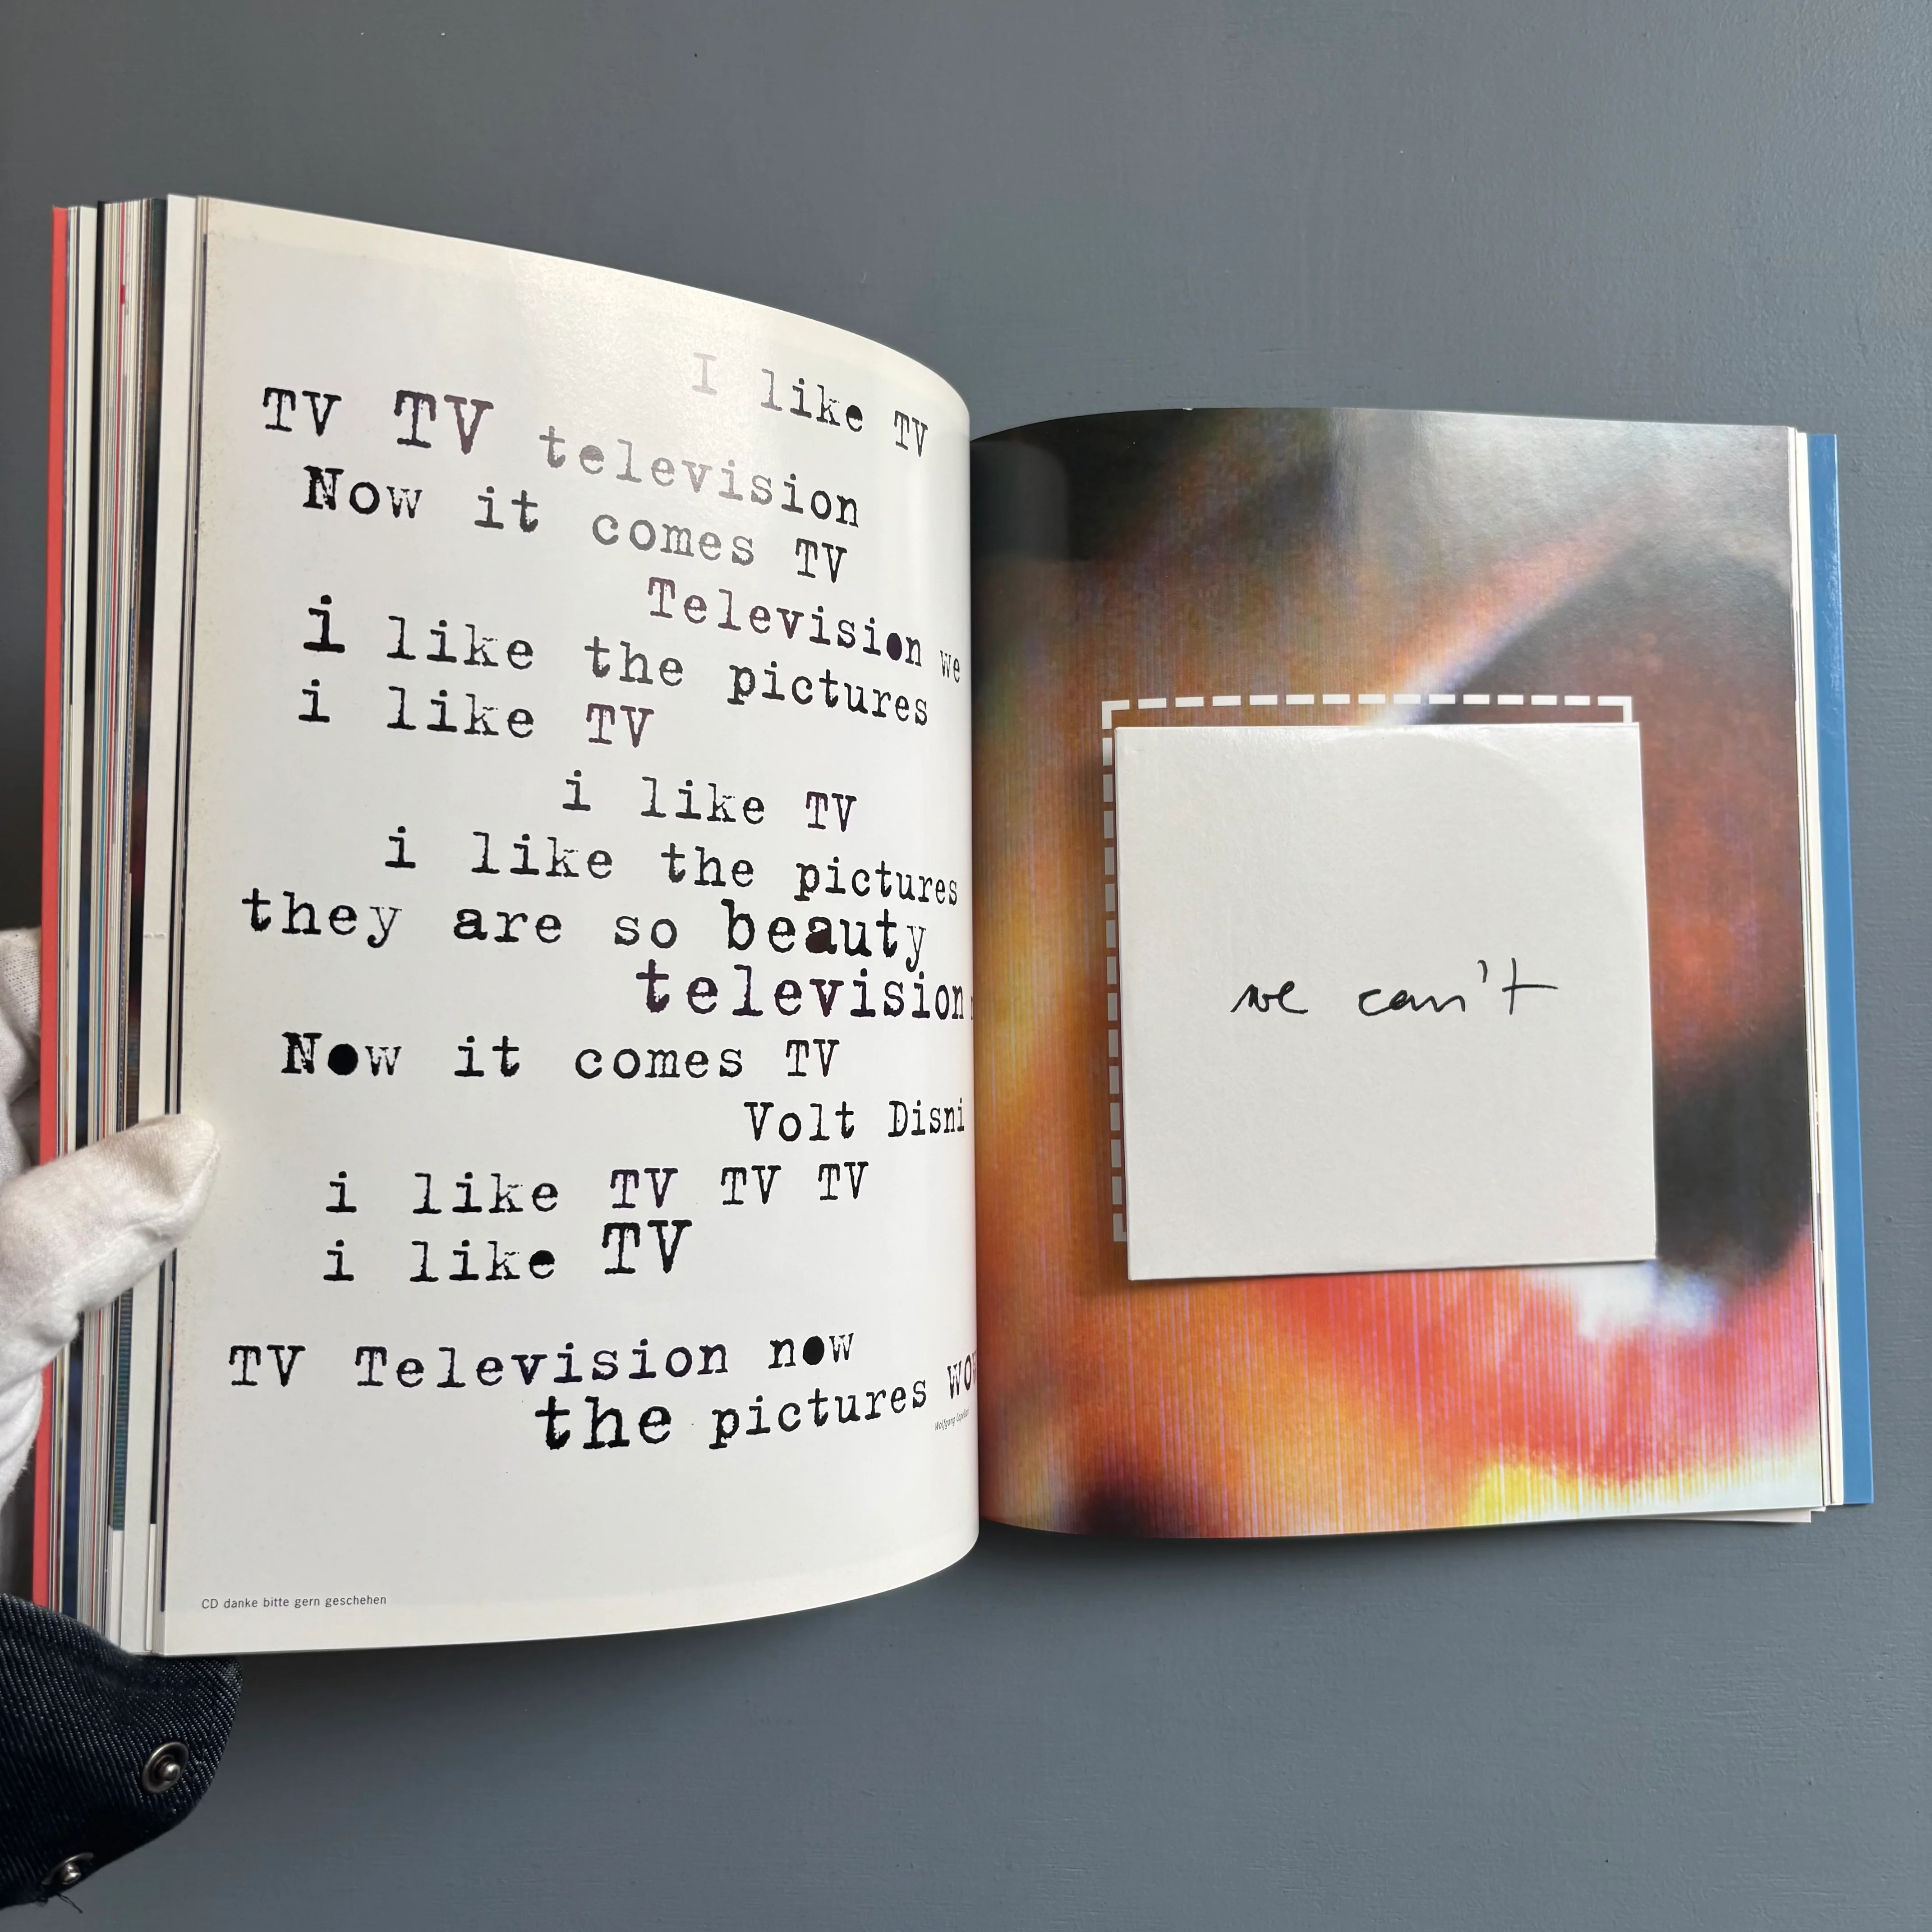 I like TV
TV TV television
Now it comes TV
Television we
i like the pictures
i like TV
i like TV
i like the pictures
they are so beauty
television
Now it comes TV
Volt Disni
i like TV TV TV
i like TV
TV Television now
the pictures
Wolfgang
CD danke bitte gern geschehen
we can't